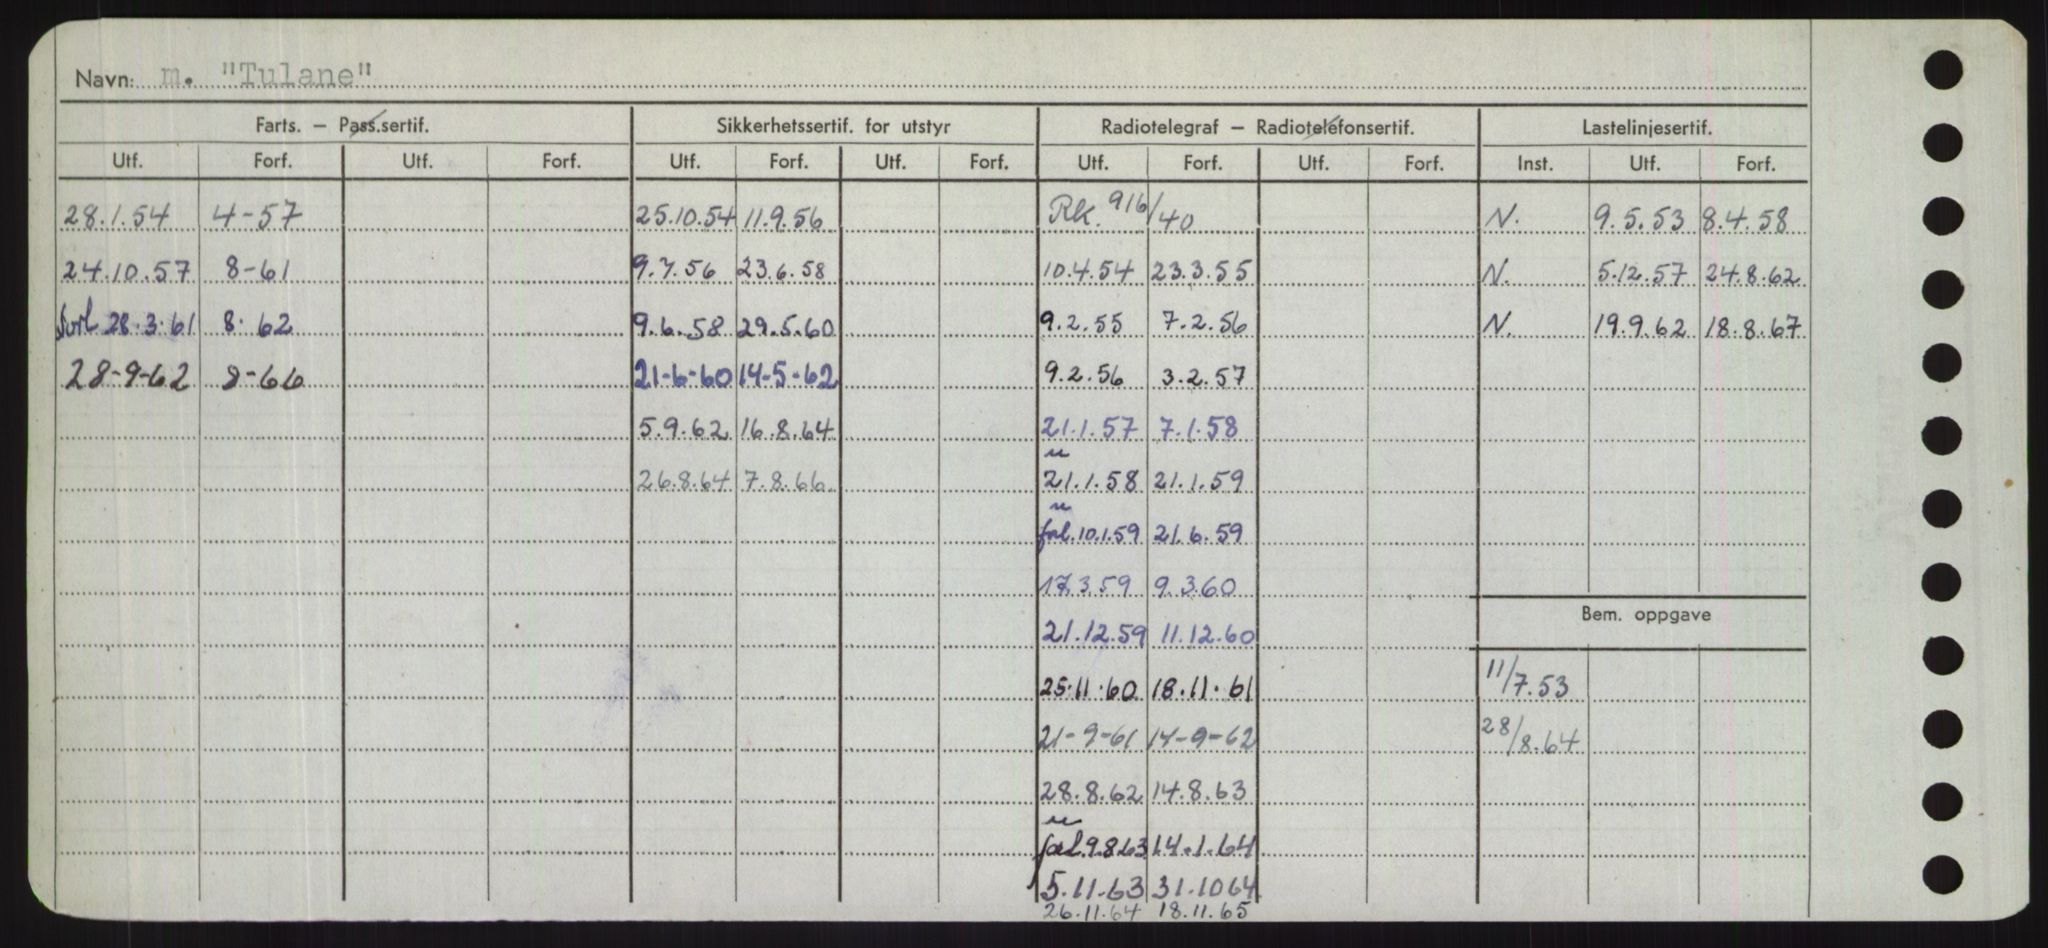 Navn: m. "Tulane"
Farts. — Pass.sertif. Sikkerhetssertif. for utstyr Radiotelegraf — Radiotelefonsertif. Lastelinjesertif.
Utf. Forf. Utf. Forf. Utf. Forf. Utf. Forf. Utf. Forf. Utf. Forf. Inst. Utf. Forf.
28.1.54 4-57 25.10.54 11.9.56 RK. 916/40 N. 9.5.53 8.4.58
24.10.57 8-61 9.7.56 23.6.58 10.4.54 23.3.55 N. 5.12.57 24.8.62
forl. 28.3.61 8.62 9.6.58 29.5.60 9.2.55 7.2.56 N. 19.9.62 18.8.67
28-9-62 8-66 21-6-60 14-5-62 9.2.56 3.2.57
5.9.62 16.8.64 21.1.57 7.1.58
26.8.64 7.8.66 21.1.58 21.1.59
forl. 10.1.59 21.6.59
17.3.59 9.3.60
Bem. oppgave
21.12.59 11.12.60
25.11.60 18.11.61 11/7.53
21-9-61 14-9-62 28/8.64
28.8.62 14.8.63
forl. 9.8.63 14.1.64
5.11.63 31.10.64
26.11.64 18.11.65